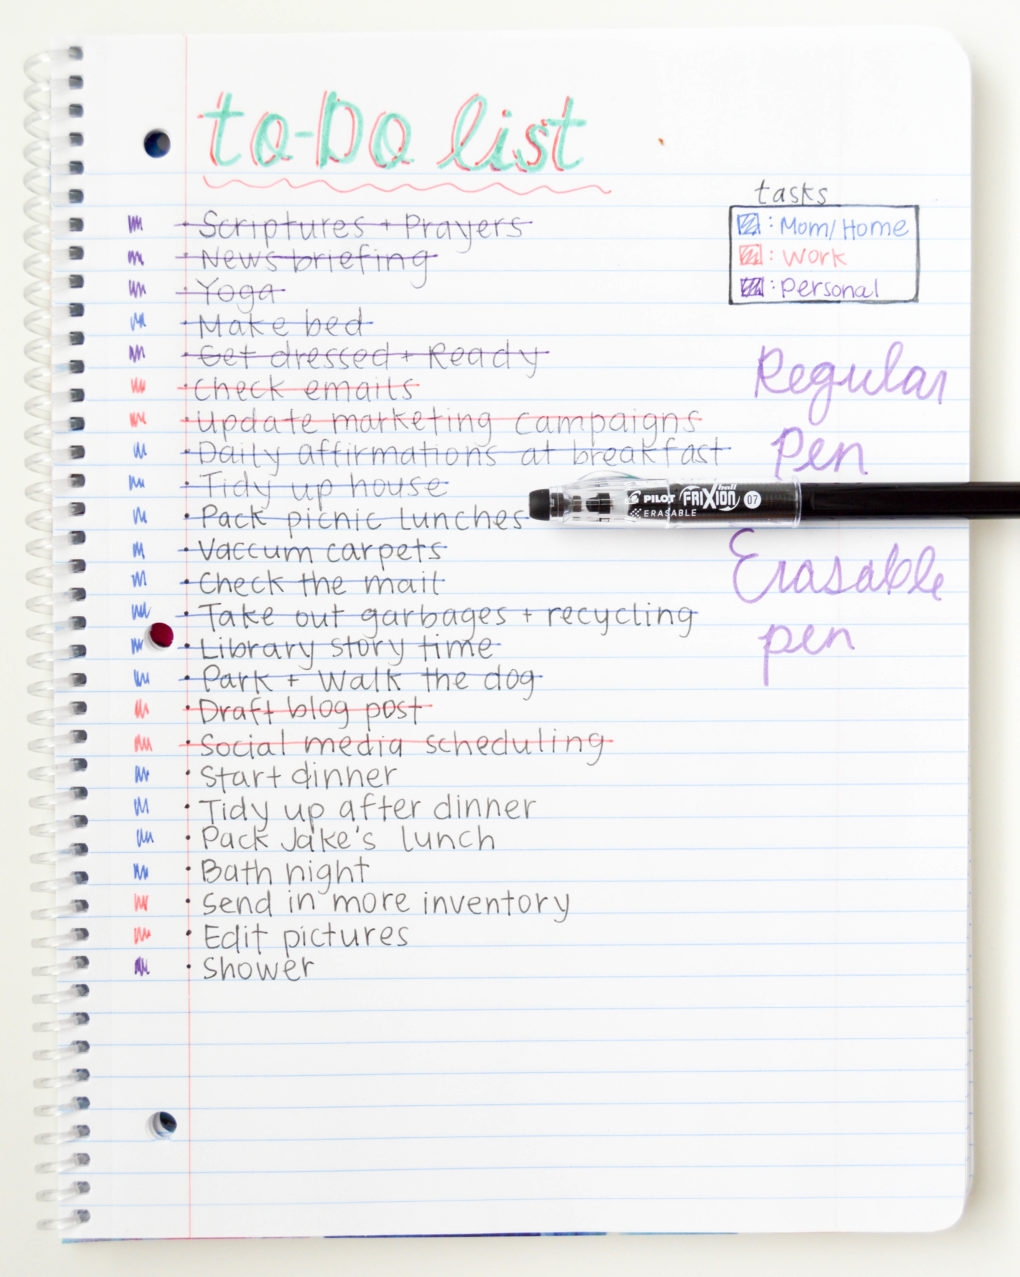 to-Do list
tasks
: Mom/Home
: Work
: Personal
· Scriptures + Prayers
· News briefing
· Yoga
· Make bed
· Get dressed + Ready
· Check emails
· Update marketing campaigns
· Daily affirmations at breakfast
· Tidy up house
· Pack picnic Lunches
· Vaccum carpets
· Check the mail
· Take out garbages + recycling
· Library story time
· Park + Walk the dog
· Draft blog post
· Social media scheduling
· Start dinner
· Tidy up after dinner
· Pack Jake's lunch
· Bath night
· Send in more inventory
· Edit pictures
· Shower
Regular
Pen
PILOT FRIXION ball 07
ERASABLE
Erasable
pen